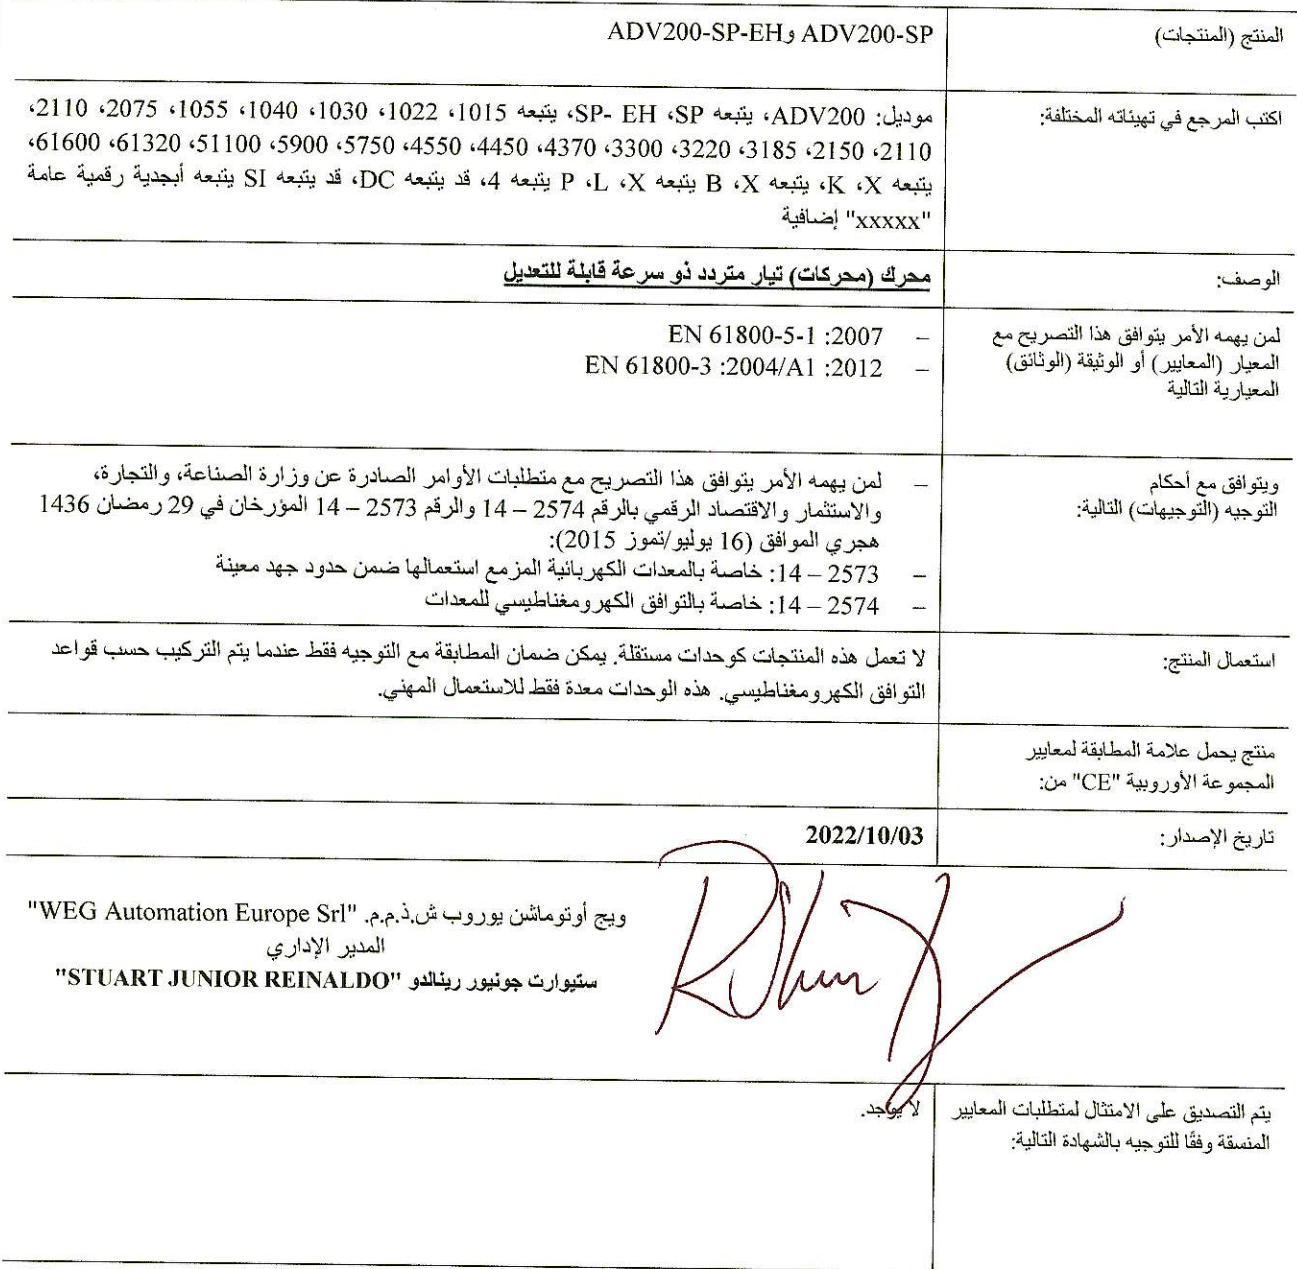 المنتج (المنتجات)
ADV200-SP وADV200-SP-EH
اكتب المرجع في تهيئاته المختلفة:
موديل: ADV200، يتبعه SP، SP- EH، يتبعه 1015، 1022، 1030، 1040، 1055، 2075، 2110،
2110، 2150، 3185، 3220، 3300، 4370، 4450، 4550، 5750، 5900، 51100، 61320، 61600،
يتبعه X، K، يتبعه X، B يتبعه X، L، P يتبعه 4، قد يتبعه DC، قد يتبعه SI يتبعه أبجدية رقمية عامة
"xxxxx" إضافية
الوصف:
محرك (محركات) تيار متردد ذو سرعة قابلة للتعديل
لمن يهمه الأمر يتوافق هذا التصريح مع
المعيار (المعايير) أو الوثيقة (الوثائق)
المعيارية التالية
– EN 61800-5-1 :2007
– EN 61800-3 :2004/A1 :2012
ويتوافق مع أحكام
التوجيه (التوجيهات) التالية:
– لمن يهمه الأمر يتوافق هذا التصريح مع متطلبات الأوامر الصادرة عن وزارة الصناعة، والتجارة،
والاستثمار والاقتصاد الرقمي بالرقم 2574 – 14 والرقم 2573 – 14 المؤرخان في 29 رمضان 1436
هجري الموافق (16 يوليو/تموز 2015):
– 2573 – 14: خاصة بالمعدات الكهربائية المزمع استعمالها ضمن حدود جهد معينة
– 2574 – 14: خاصة بالتوافق الكهرومغناطيسي للمعدات
استعمال المنتج:
لا تعمل هذه المنتجات كوحدات مستقلة. يمكن ضمان المطابقة مع التوجيه فقط عندما يتم التركيب حسب قواعد
التوافق الكهرومغناطيسي. هذه الوحدات معدة فقط للاستعمال المهني.
منتج يحمل علامة المطابقة لمعايير
المجموعة الأوروبية "CE" من:
تاريخ الإصدار:
2022/10/03
ويج أوتوماشن يوروب ش.ذ.م.م. "WEG Automation Europe Srl"
المدير الإداري
ستيوارت جونيور رينالدو "STUART JUNIOR REINALDO"
يتم التصديق على الامتثال لمتطلبات المعايير
المنسقة وفقًا للتوجيه بالشهادة التالية:
لا يوجد.